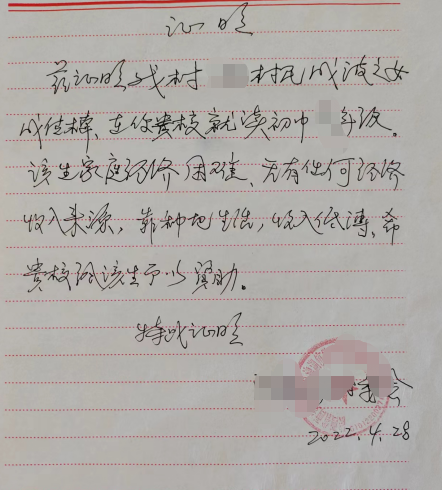 证明
兹证明我村 村民成波之女
成佳 在你贵校就读初中 年级。
该生家庭经济困难、无有任何经济
收入来源，靠种地生活，收入低薄、希
贵校视该生予以资助。
特此证明
委会
2022.4.28